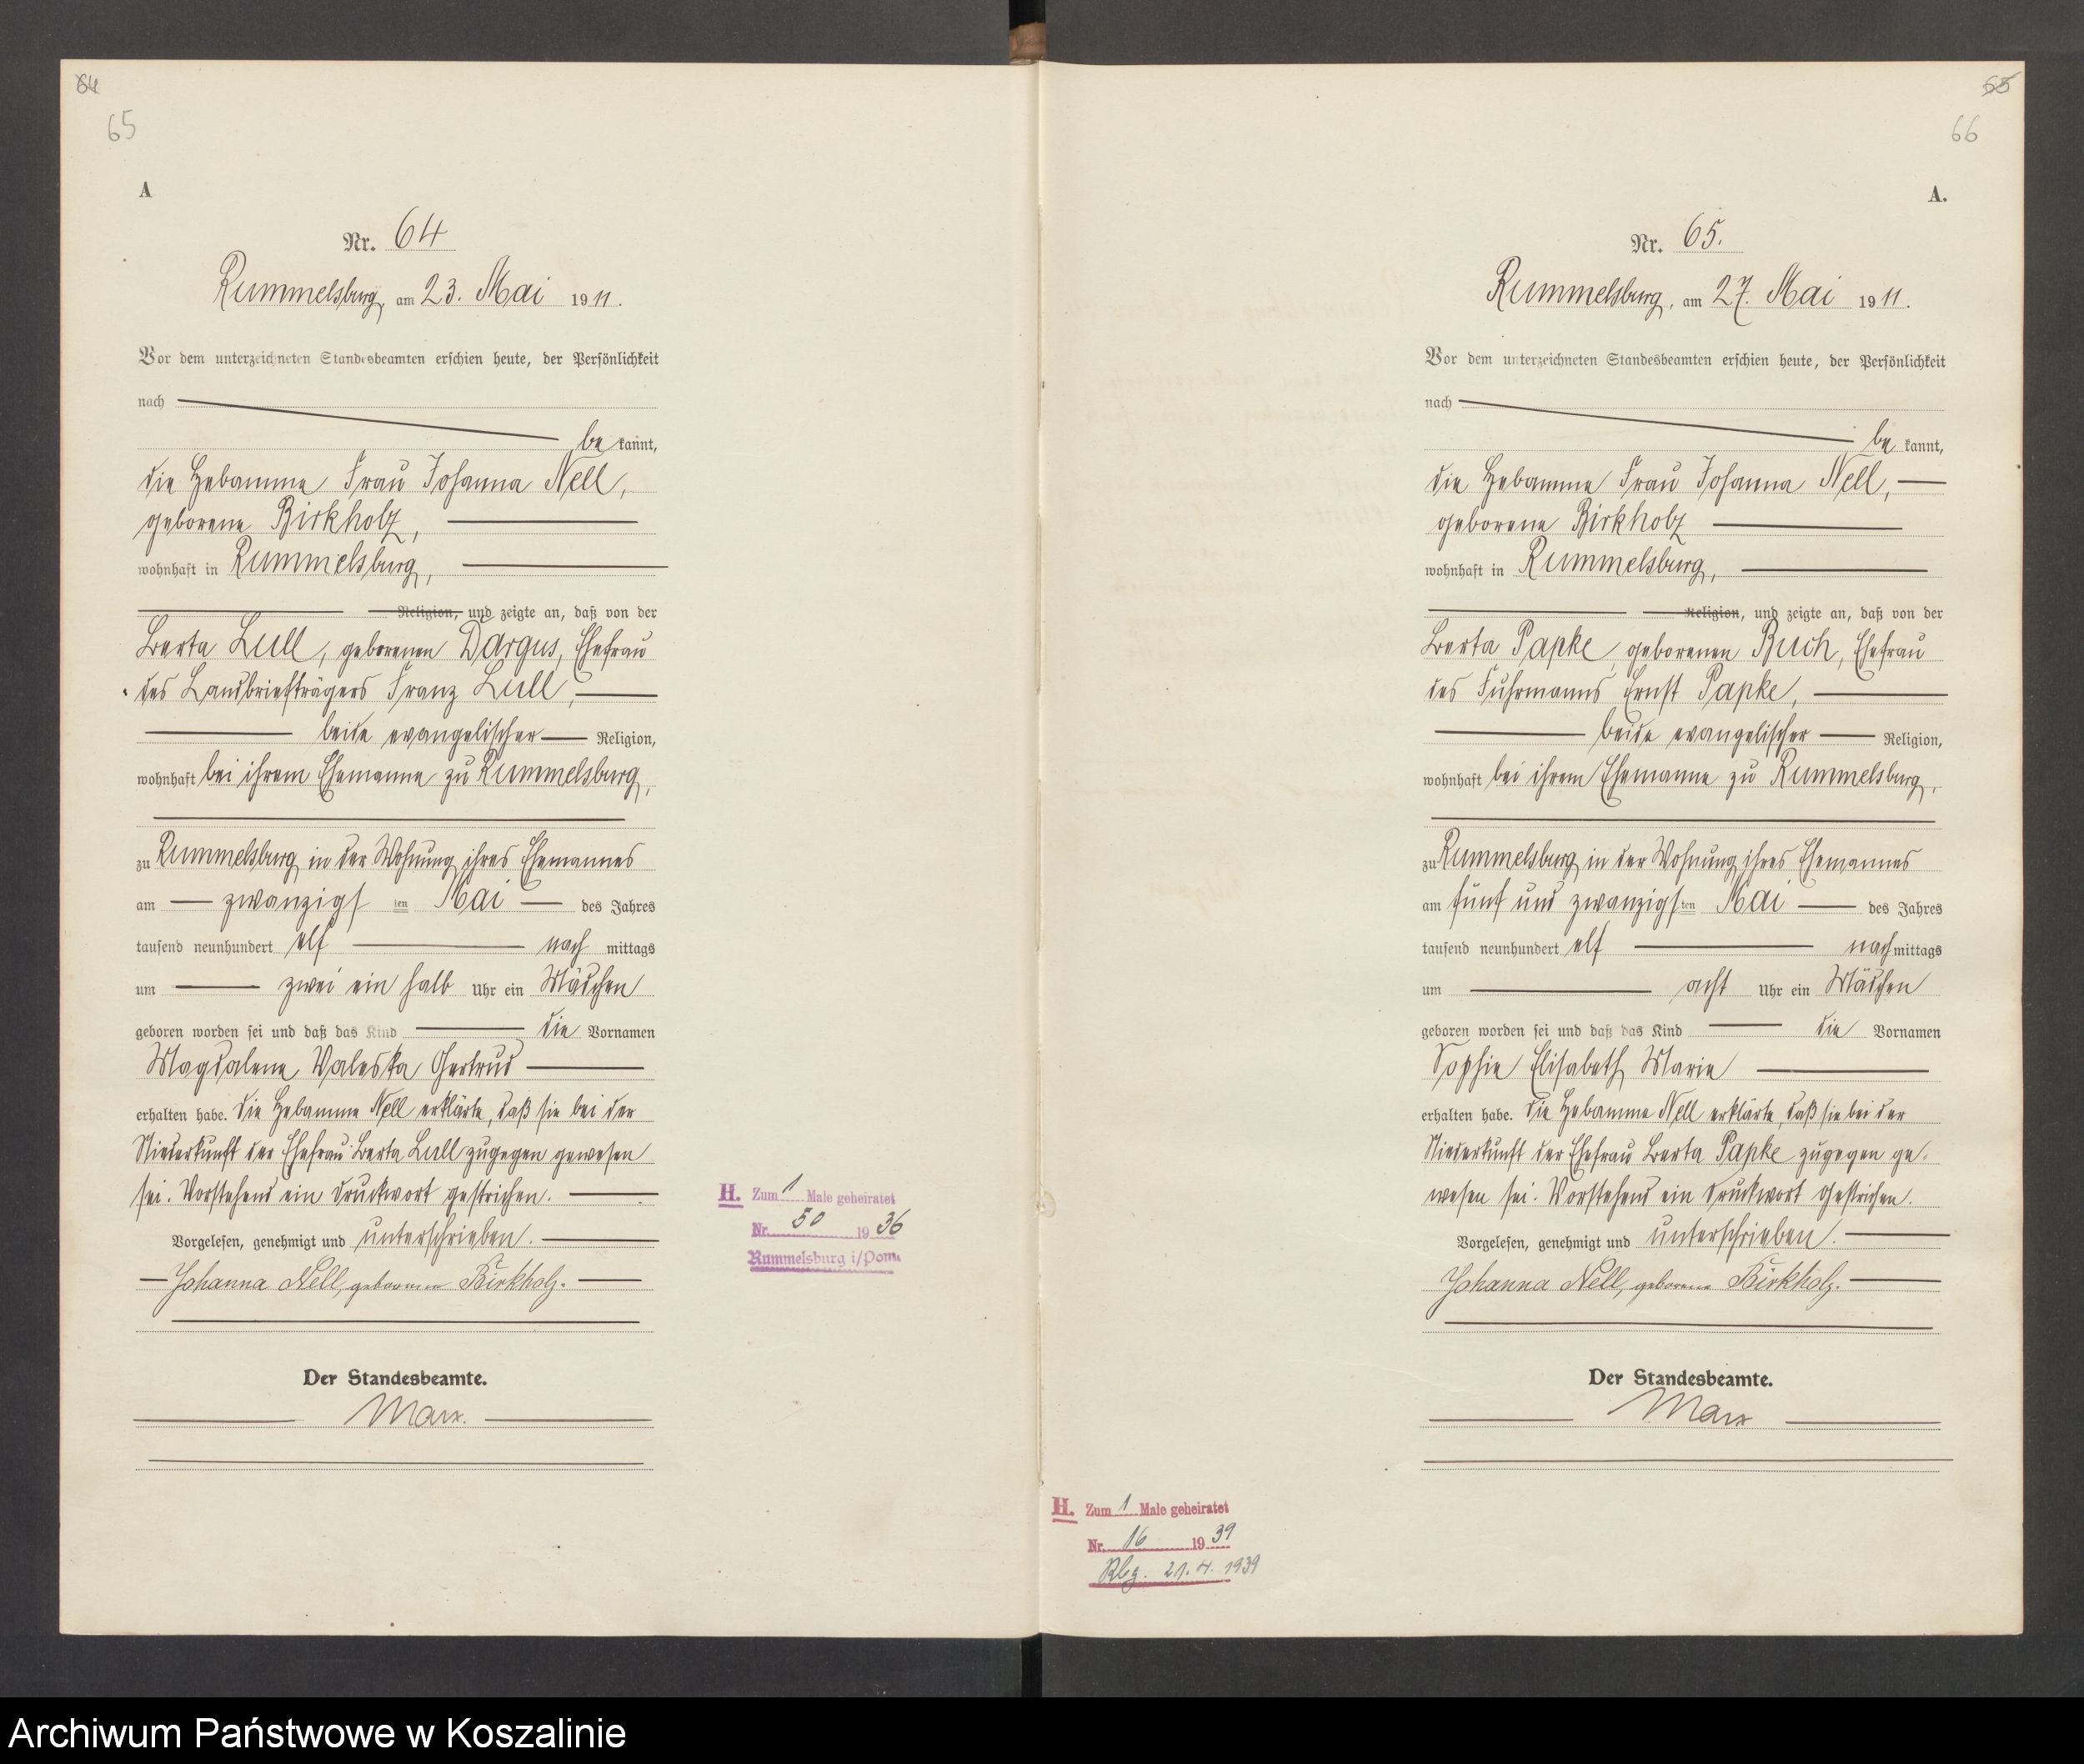 64
65
A
Nr. 64
Rummelsburg, am 23. Mai 1911.
Vor dem unterzeichneten Standesbeamten erschien heute, der Persönlichkeit
nach
be kannt,
die Hebamme Frau Johanna Nell,
geborene Birkholz,
wohnhaft in Rummelsburg,
Religion, und zeigte an, daß von der
Berta Lull, geborenen Dargus, Ehefrau
des Landbriefträgers Franz Lull,
beide evangelischer Religion,
wohnhaft bei ihrem Ehemanne zu Rummelsburg,
zu Rummelsburg in der Wohnung ihres Ehemannes
am zwanzigsten Mai des Jahres
tausend neunhundert elf nach mittags
um zwei ein halb Uhr ein Mädchen
geboren worden sei und daß das Kind die Vornamen
Magdalene Valeska Gertrud
erhalten habe. Die Hebamme Nell erklärte, daß sie bei der
Niederkunft der Ehefrau Berta Lull zugegen gewesen
sei. Vorstehend ein Druckwort gestrichen.
Vorgelesen, genehmigt und unterschrieben.
Johanna Nell, geborene Birkholz.
Der Standesbeamte.
Marx.
H. Zum 1 Male geheiratet
Nr. 50 1936
Rummelsburg i/Pom.
65
66
A.
Nr. 65.
Rummelsburg, am 27. Mai 1911.
Vor dem unterzeichneten Standesbeamten erschien heute, der Persönlichkeit
nach
be kannt,
die Hebamme Frau Johanna Nell,
geborene Birkholz
wohnhaft in Rummelsburg,
Religion, und zeigte an, daß von der
Berta Papke, geborenen Buch, Ehefrau
des Fuhrmanns Ernst Papke,
beide evangelischer Religion,
wohnhaft bei ihrem Ehemanne zu Rummelsburg,
zu Rummelsburg in der Wohnung ihres Ehemannes
am fünf und zwanzigsten Mai des Jahres
tausend neunhundert elf nachmittags
um acht Uhr ein Mädchen
geboren worden sei und daß das Kind die Vornamen
Sophie Elisabeth Marie
erhalten habe. Die Hebamme Nell erklärte, daß sie bei der
Niederkunft der Ehefrau Berta Papke zugegen ge-
wesen sei. Vorstehend ein Druckwort gestrichen.
Vorgelesen, genehmigt und unterschrieben.
Johanna Nell, geborene Birkholz.
Der Standesbeamte.
Marx
H. Zum 1 Male geheiratet
Nr. 16 1939
Rbg. 21.4.1939
Archiwum Państwowe w Koszalinie